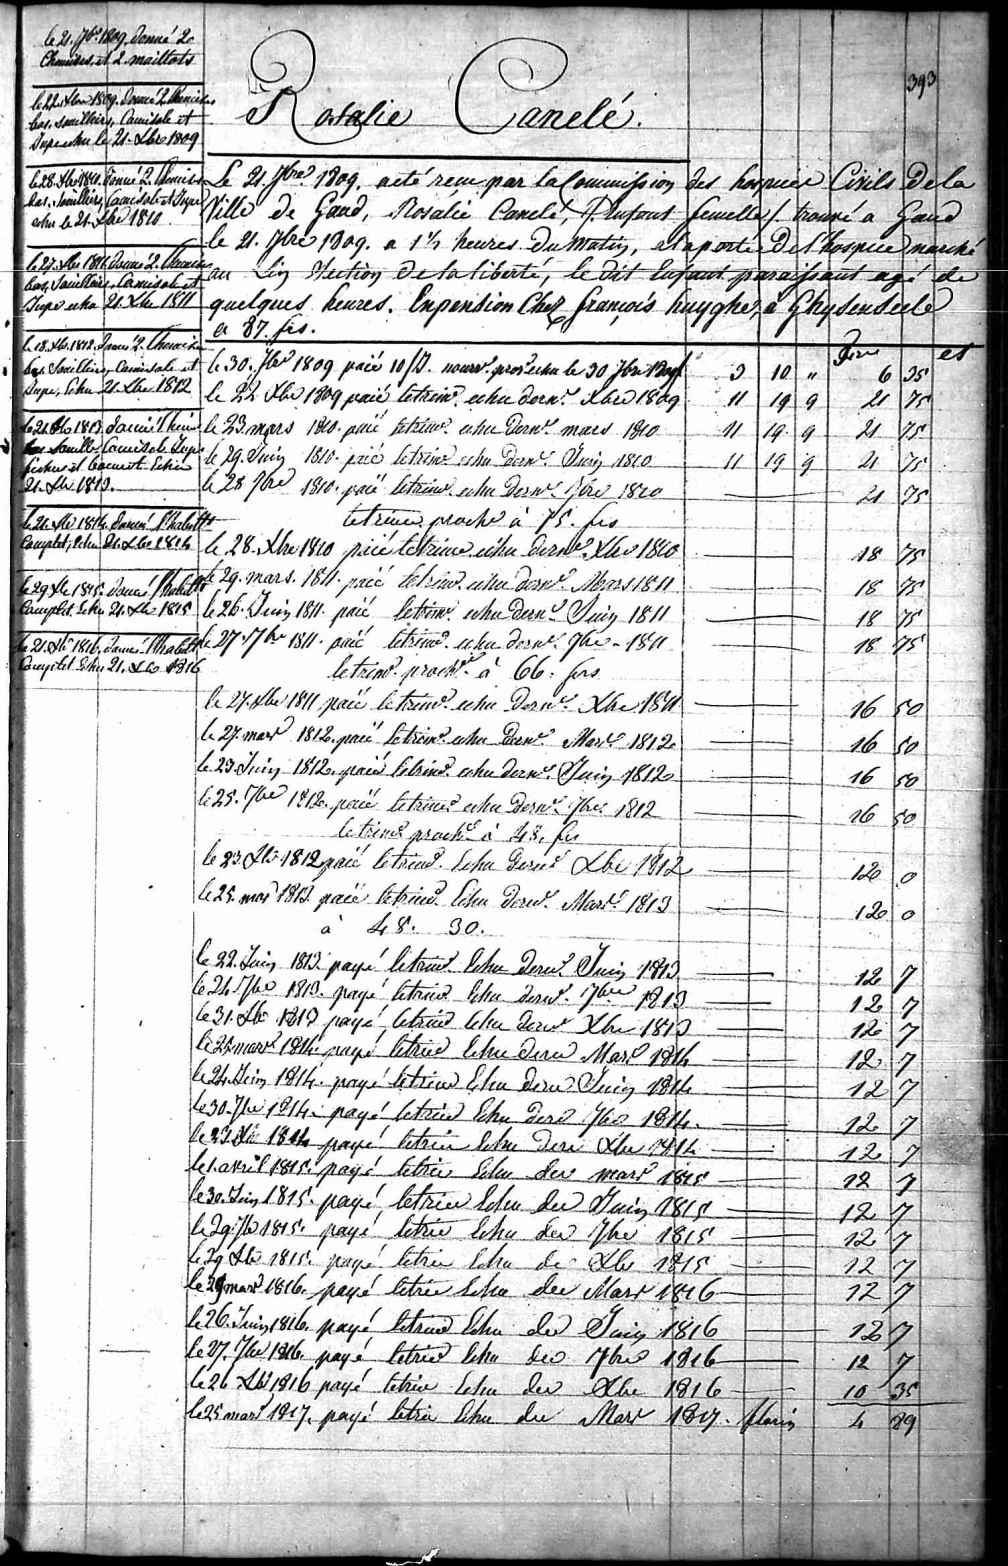 393
Rosalie Canelé.
le 21. 7bre 1809. donné 2
Chemises, et 2. maillots
le 22 Xbre 1809. donné 2 Chemises
bas, souilliers, Camisole et
Jupe echu le 21. Xbre 1809
le 28. Xbre 1810. donné 2. Chemises
bas, Souilliers, Camisole et Jupe
echu le 21. Xbre 1810
le 27. Xbre 1811. donné 2. Chemises
bas, Souilliers, Camisole et
Jupe echu 21. Xbre 1811
le 18. Xbre 1812. donné 2. Chemises
bas, Souilliers, Camisole et
Jupe, Echu 21. Xbre 1812
le 21. Xbre 1813. donné Chemise
bas Souill. Camisole Jupe
fichu et bonnet Echu
21. Xbre 1813.
le 21. Xbre 1814. donné l'habillt
Complet, Echu 21. Xbre 1814
le 29 Xbre 1815. donné l'habillt
Complet Echu 21. Xbre 1815
le 21. Xbre 1816. donné l'habillt
Complet Echu 21. Xbre 1816
Le 21. 7bre 1809. a été recu par la Commission des hospices Civils de la
Ville de Gand, Rosalie Canelé, /: Enfant femelle /: trouvé a Gand
le 21. 7bre 1809. a 1½ heures du Matin, a la porte de l'hospice marché
au Lin Section de la liberté, le dit Enfant paraissant agé de
quelques heures. En pension Chez françois huyghe, a Ghysenseele
a 87. frs.
et
le 30. 7bre 1809 paié 10/J. nourr. pror. echu le 30 7bre 1809 3 10 " 6 35
le 22 Xbre 1809 paié letrime. echu dernr. Xbre 1809 11 19 9 21 75
le 23 mars 1810. paié letrime. echu dernr. mars 1810 11 19 9 21 75
le 29. Juin 1810. paié letrime. echu dernr. Juin 1810 11 19 9 21 75
le 28 7bre 1810. paié letrime. echu dernr. 7bre 1810 21 75
letrime proche à 75. frs
le 28. Xbre 1810 paié letrime echu dernr. Xbre 1810 18 75
le 29. mars. 1811. paié letrime. echu dernr. Mars 1811 18 75
le 26. Juin 1811. paié letrime. echu dernr. Juin 1811 18 75
le 27. 7bre 1811. paié letrime. echu dernr. 7bre 1811 18 75
letrime. proche. à 66. frs
le 27. Xbre 1811 paié letrime. echu dernr. Xbre 1811 16 50
le 27. mars 1812. paié letrime. echu dernr. Mars 1812 16 50
le 23. Juin 1812. paié letrime. echu dernr. Juin 1812 16 50
le 25. 7bre 1812. paié letrime echu dernr. 7bre 1812 16 50
letrime proche à 48. frs
le 23 Xbre 1812 paié letrime. Echu dernr. Xbre 1812 12 0
le 25. mars 1813. paié letrime. Echu dernr. Mars 1813 12 0
à 48. 30.
le 22. Juin 1813. payé letrime. Echu dernr. Juin 1813 12 7
le 24. 7bre 1813. payé letrime Echu dernr. 7bre 1813 12 7
le 31. Xbre 1813 payé letrime Echu dernr Xbre 1813 12 7
le 25 mars 1814. payé letrime Echu dernr Mars 1814 12 7
le 24. Juin 1814. payé letrime Echu dernr Juin 1814 12 7
le 30. 7bre 1814. payé letrime Echu dernr 7bre 1814. 12 7
le 23. Xbre 1814 payé letrime Echu dernr Xbre 1814 12 7
le 1. avril 1815. payé letrie Echu der mars 1815 12 7
le 30. Juin 1815. payé letrie Echu der Juin 1815 12 7
le 29. 7bre 1815. payé letrie Echu der 7bre 1815 12 7
le 29 Xbre 1815. payé letrie Echu de Xbre 1815 12 7
le 29 mars 1816. payé letrie Echu der Mars 1816 12 7
le 26. Juin 1816. payé letrime Echu der Juin 1816 12 7
le 27. 7bre 1816. payé letrie Echu der 7bre 1816 12 7
le 26 Xbre 1816 payé letrie Echu der Xbre 1816 10 35
le 25 mars 1817. payé letrie Echu der Mars 1817. florin 4 89